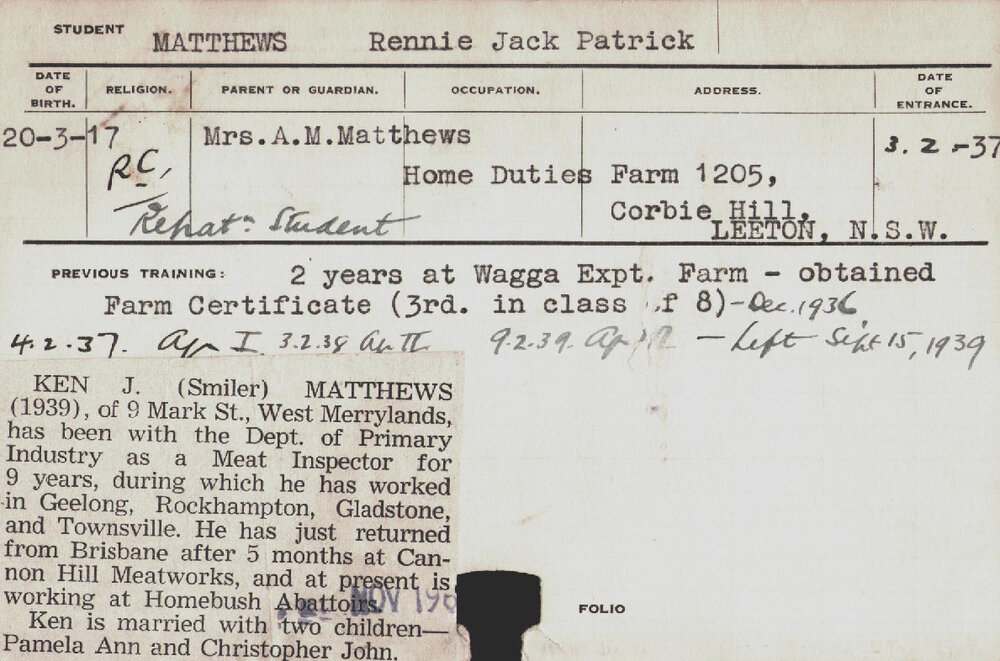 STUDENT MATTHEWS Rennie Jack Patrick
DATE OF BIRTH. RELIGION. PARENT OR GUARDIAN. OCCUPATION. ADDRESS. DATE OF ENTRANCE.
20-3-17 Mrs.A.M.Matthews 3.2.-37
R.C. Home Duties Farm 1205,
Corbie Hill,
Repatn Student LEETON, N.S.W.
PREVIOUS TRAINING: 2 years at Wagga Expt. Farm - obtained
Farm Certificate (3rd. in class f 8)-Dec.1936
4.2.37. Agr I 3.2.38 Agr II 9.2.39. Agr - Left Sept 15, 1939
KEN J. (Smiler) MATTHEWS
(1939), of 9 Mark St., West Merrylands,
has been with the Dept. of Primary
Industry as a Meat Inspector for
9 years, during which he has worked
in Geelong, Rockhampton, Gladstone,
and Townsville. He has just returned
from Brisbane after 5 months at Can-
non Hill Meatworks, and at present is
working at Homebush Abattoirs.
NOV 196
Ken is married with two children—
Pamela Ann and Christopher John.
FOLIO